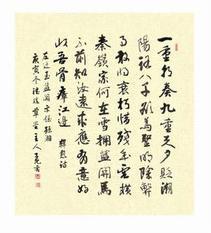 一封朝奏九重天夕貶潮
陽路八千欲为聖明除弊
事敢將衰朽惜殘年雲橫
秦嶺家何在雪擁藍關馬
不前知汝遠來應有意好
收吾骨瘴江邊 韓愈詩
左遷至藍關示侄孫湘
庚寅冬草堂主人書